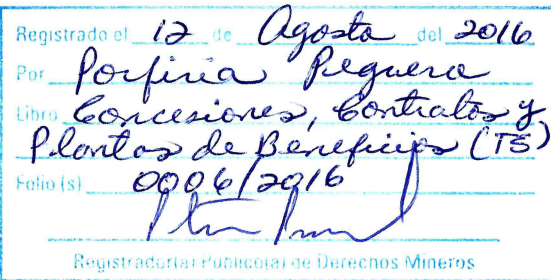 Registrado el 12 de Agosto del 2016
Por Porfiria Peguero
Libro Concesiones, Contratos y
Plantas de Beneficios (TS)
Folio (s) 0006/2016
Registrador(a) Publico(a) de Derechos Mineros